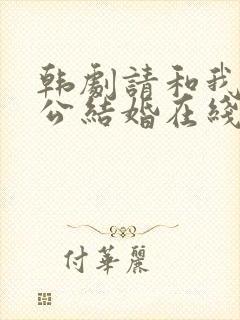 韩劇請和我
公結婚在綫
付華麗